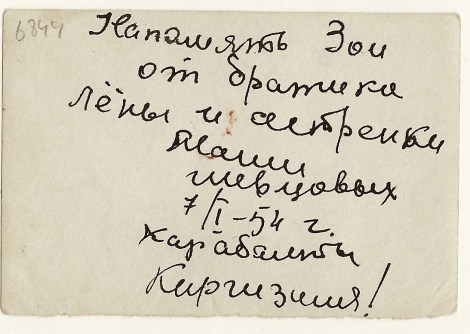 6844
Напомять Зои
от братика
Лёны и сестренки
Тани
шевцовых
7/I-54 г.
Карабалты
Киргизия!